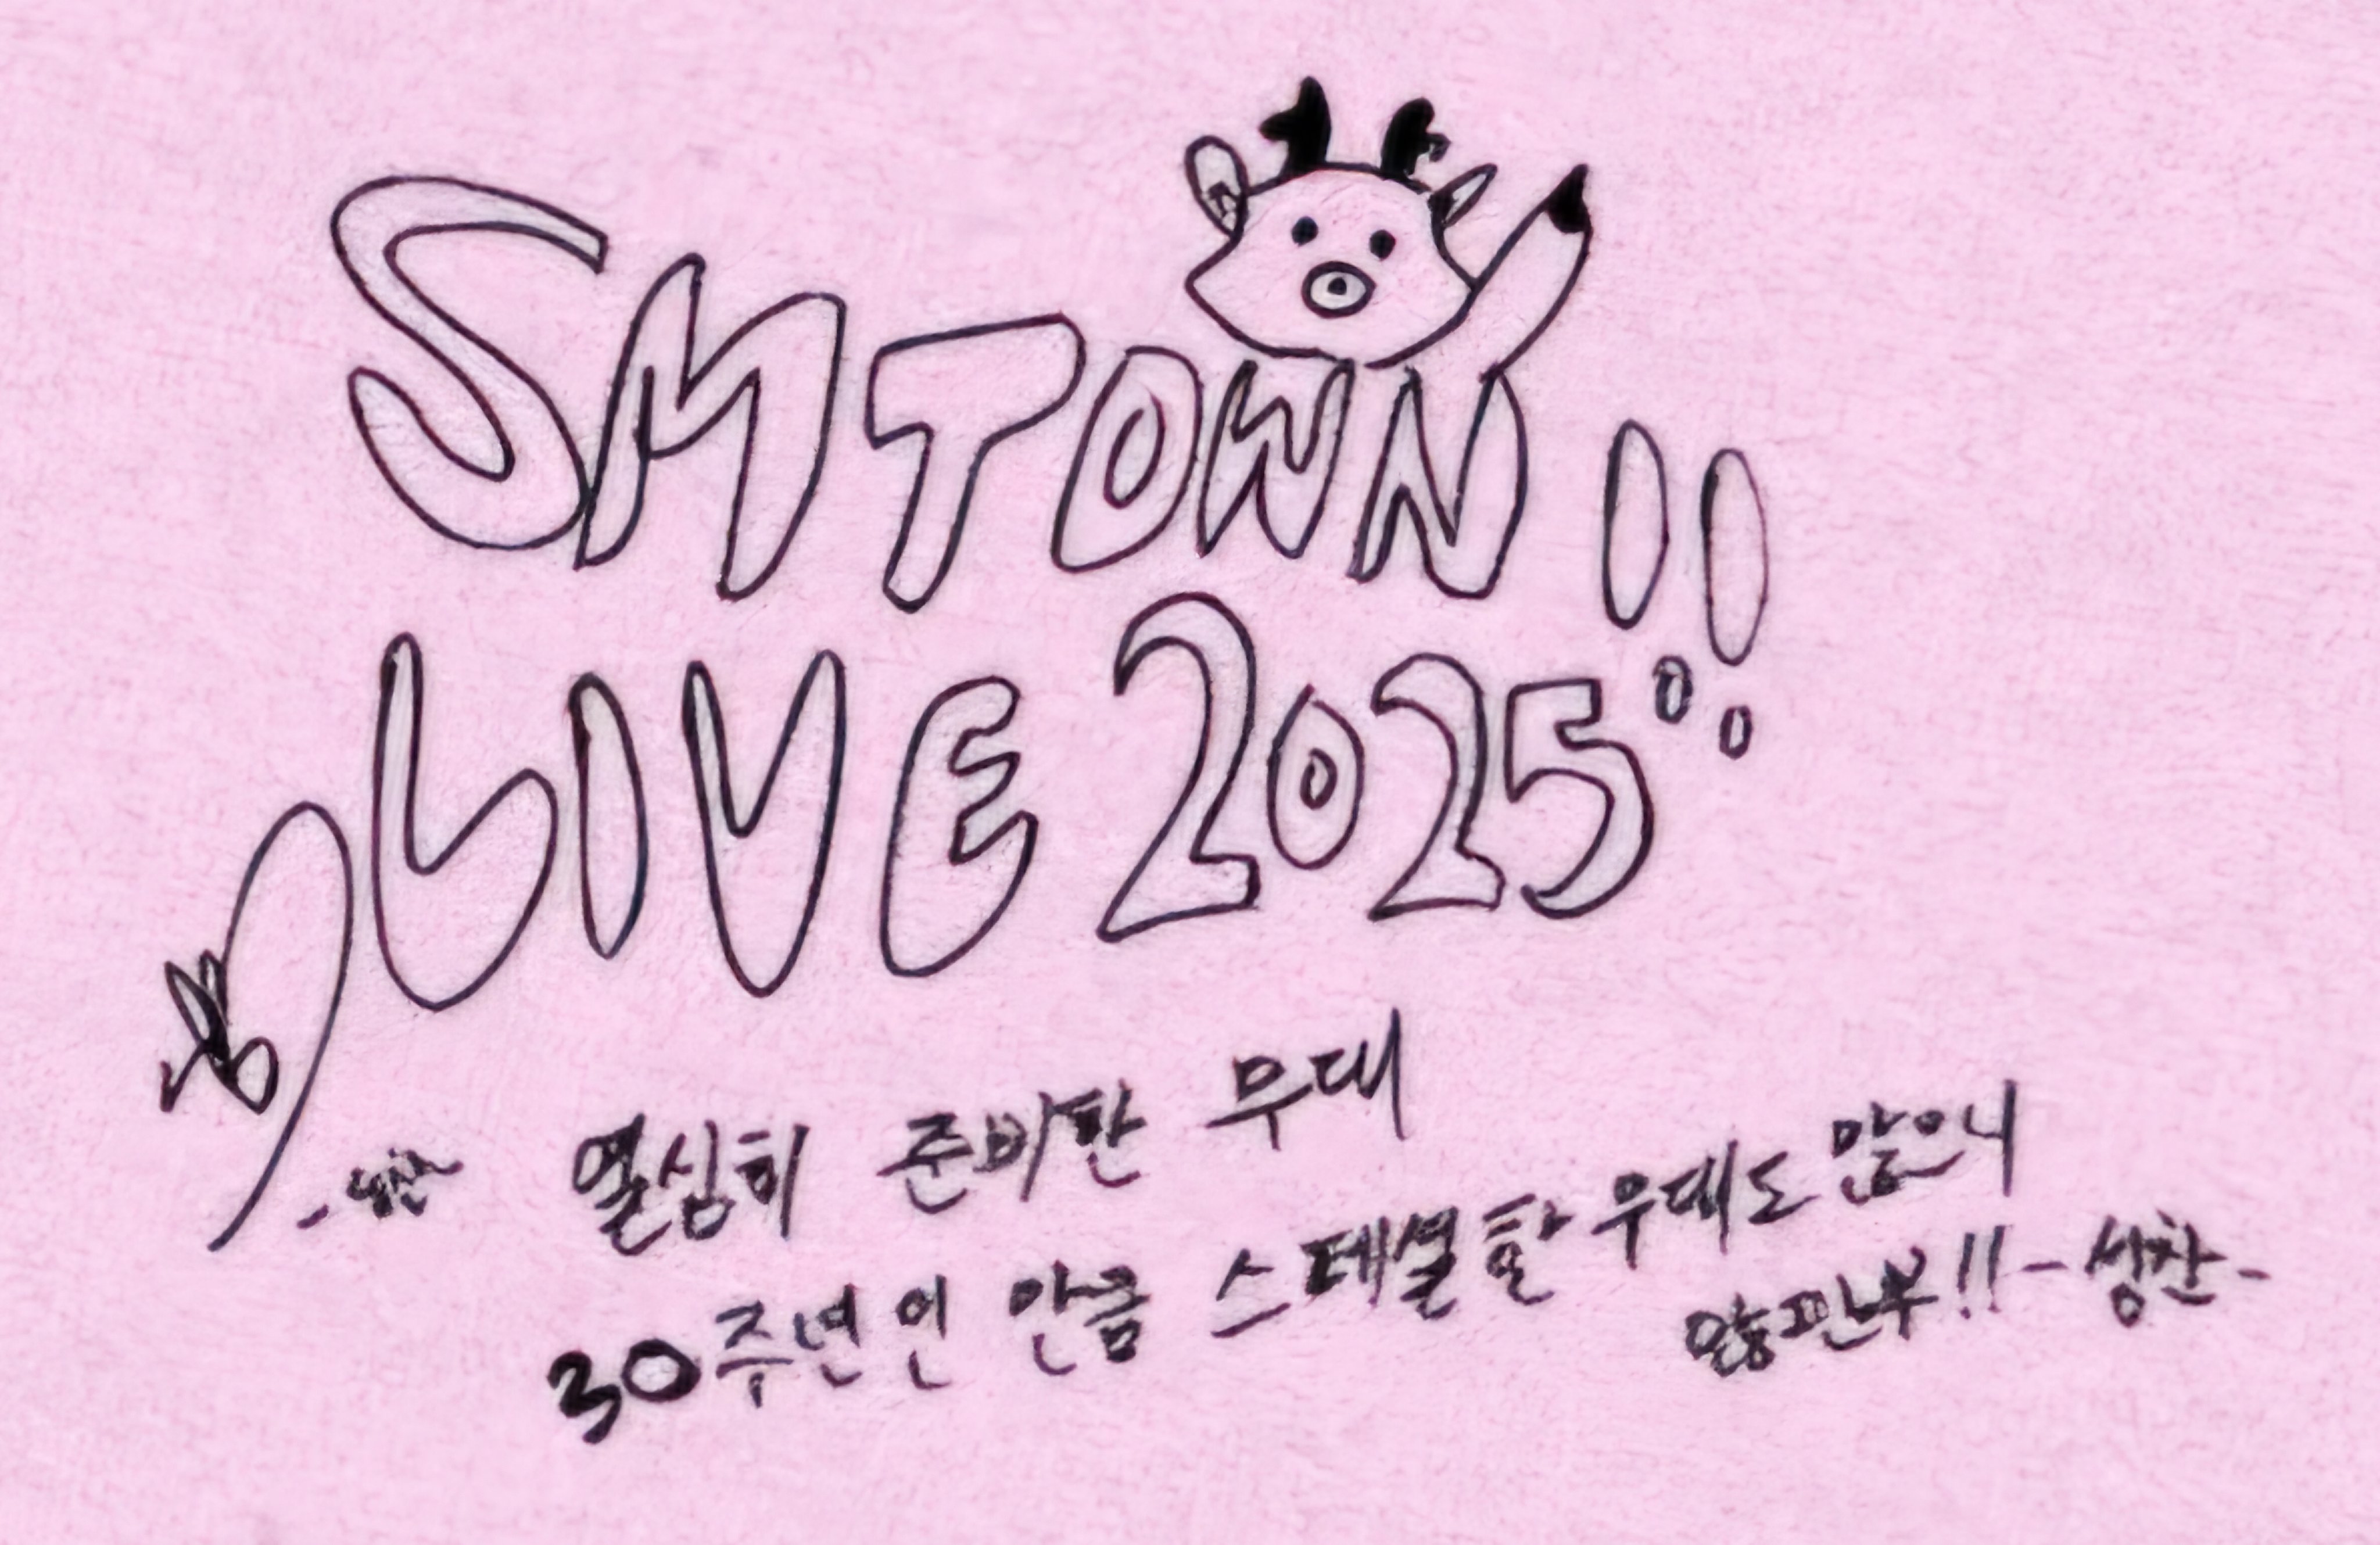 SMTOWN !!
LIVE 2025
열심히 준비한 무대
30주년인 만큼 스페셜한 무대도 많으니
많관부!! -성찬-